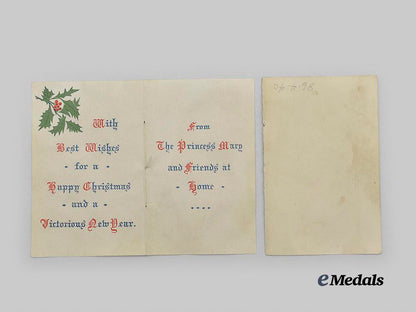 With
Best Wishes
- for a -
Happy Christmas
- and a -
Victorious New Year.
From
The Princess Mary
and Friends at
- Home -
- - - -
eMedals